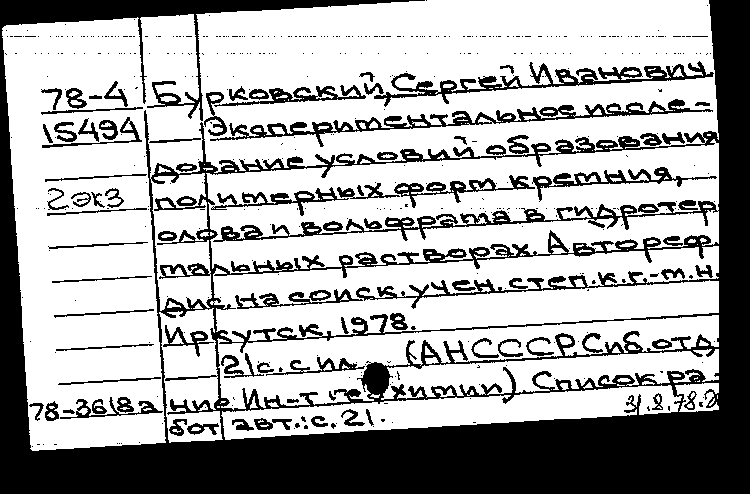 78-4 Бурковский, Сергей Иванович.
15494 Экспериментальное иссле-
дование условий образования
2 экз полимерных форм кремния,
олова и вольфрама в гидротер
мальных растворах. Автореф.
дис. на соиск. учен. степ. к. г.-м. н.
Иркутск, 1978.
21 с. с ил. (АН СССР. Сиб. отд-
78-3618а ние Ин-т геохимии). Список ра-
бот авт.: с. 21.
31.8.78.